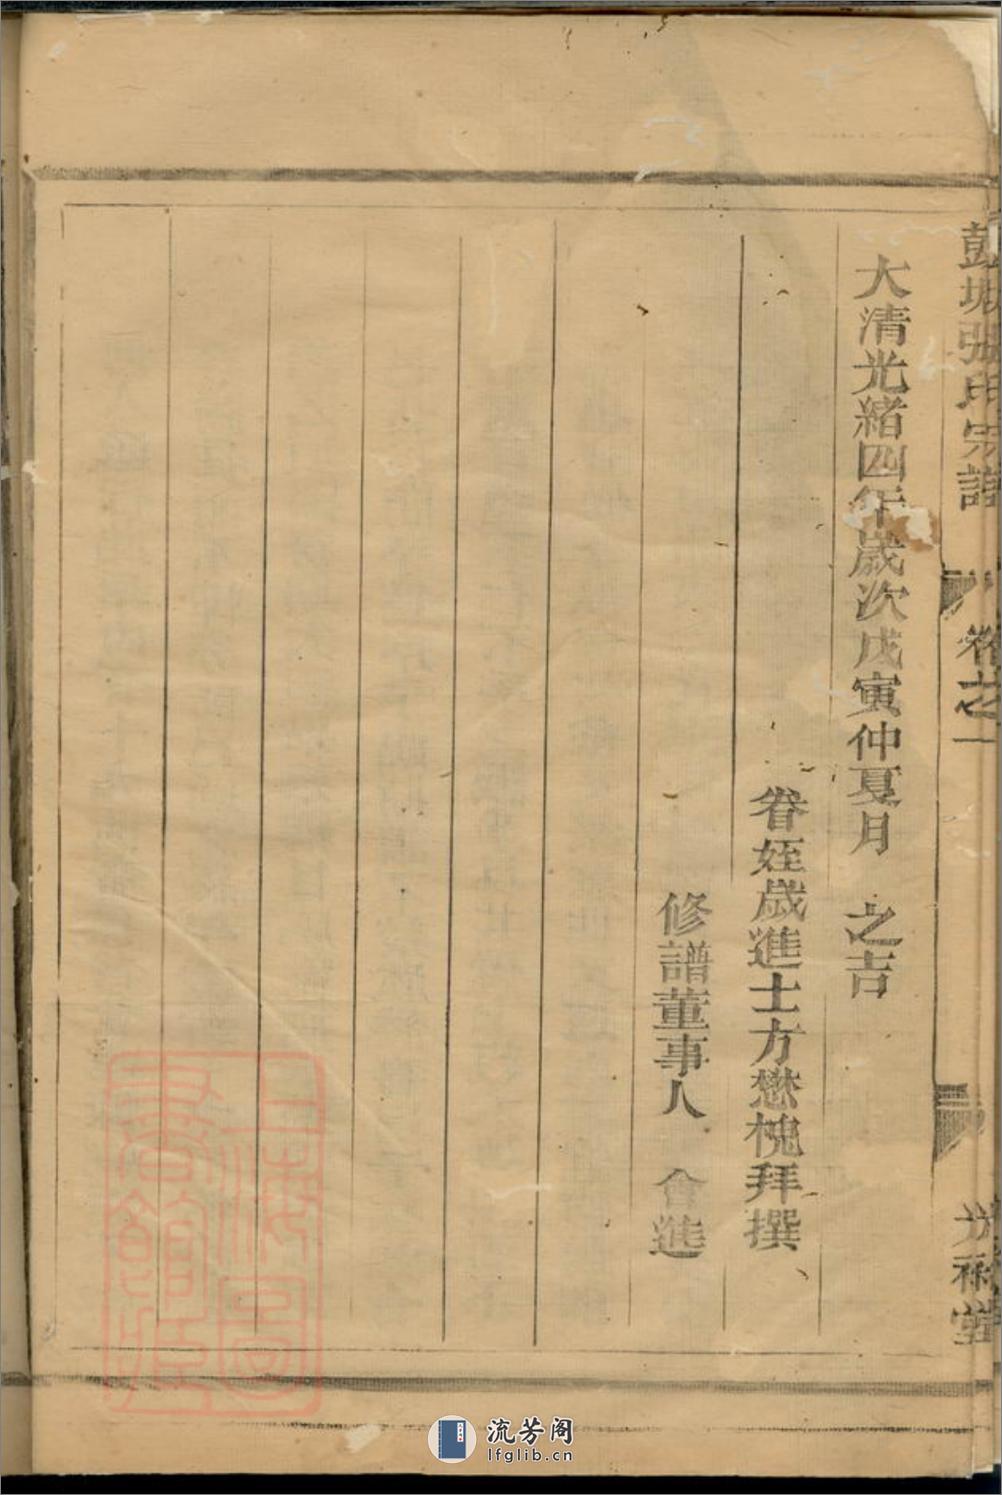 彭城張氏宗譜 卷之一 光裕堂
大清光緒四年歲次戊寅仲夏月 之吉
眷姪歲進士方懋槐拜撰
修譜董事人 會進
上海圖
書館藏
流芳阁
lfglib.cn